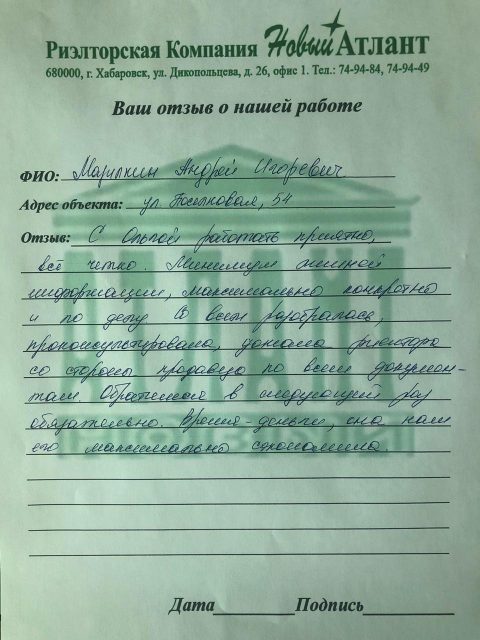 Риэлторская Компания Новый Атлант
680000, г. Хабаровск, ул. Дикопольцева, д. 26, офис 1. Тел.: 74-94-84, 74-94-49
Ваш отзыв о нашей работе
ФИО: Андрей Игоревич
Адрес объекта: ул. 54
Отзыв: С Ольгой работать приятно,
всё четко. Минимум лишней
информации, максимально конкретно
и по делу. Во всем разобралась,
проконсультировала, риэлтора
со стороны продавца по всем докумен-
там. Обратимся в следующий раз
обязательно. Время-деньги, она нам
его максимально сэкономила.
Дата Подпись